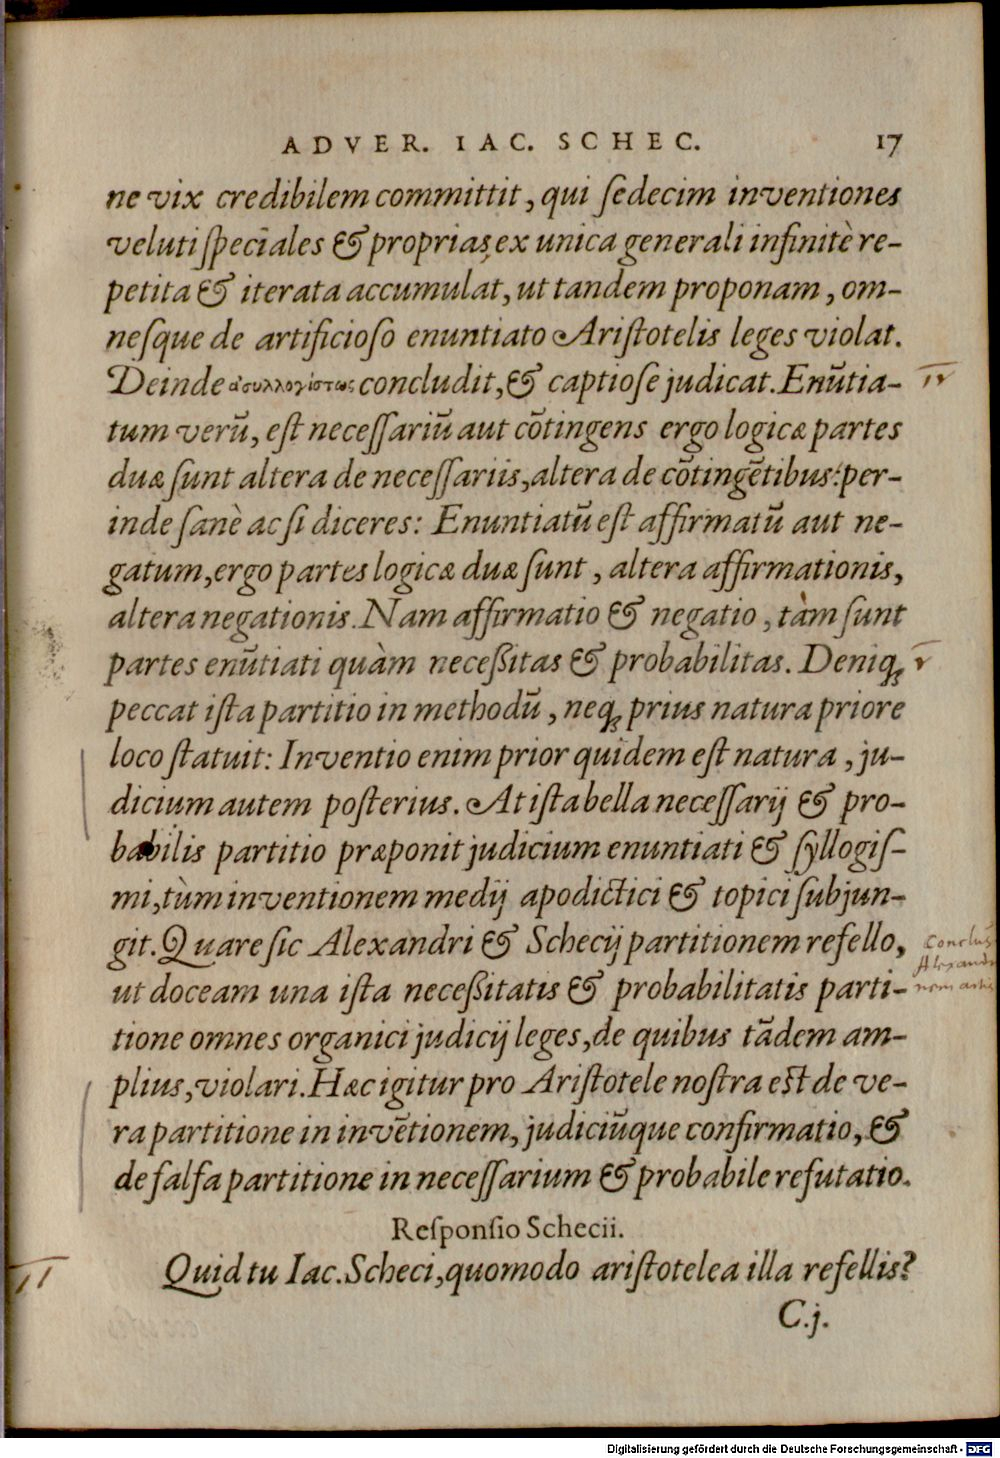 ADVER. IAC. SCHEC. 17
ne vix credibilem committit, qui ſedecim inventiones
veluti ſpeciales & proprias, ex unica generali infinitè re-
petita & iterata accumulat, ut tandem proponam, om-
neſque de artificioſo enuntiato Ariſtotelis leges violat.
Deinde ἀσυλλογίστως concludit, & captioſe judicat. Enũtia- IV
tum verũ, eſt neceſſariũ aut cõtingens ergo logicæ partes
duæ ſunt altera de neceſſariis, altera de cõtingẽtibus: per-
inde ſanè ac ſi diceres: Enuntiatũ eſt affirmatũ aut ne-
gatum, ergo partes logicæ duæ ſunt, altera affirmationis,
altera negationis. Nam affirmatio & negatio, tàm ſunt
partes enũtiati quàm neceßitas & probabilitas. Deniq; V
peccat iſta partitio in methodũ, neq; prius natura priore
loco ſtatuit: Inventio enim prior quidem eſt natura, ju-
dicium autem poſterius. At iſta bella neceſſarij & pro-
babilis partitio præponit judicium enuntiati & ſyllogiſ-
mi, tùm inventionem medij apodictici & topici ſubjun-
git. Quare ſic Alexandri & Schecij partitionem refello,
ut doceam una iſta neceßitatis & probabilitatis parti-
tione omnes organici judicij leges, de quibus tãdem am-
plius, violari. Hæc igitur pro Ariſtotele noſtra eſt de ve-
ra partitione in invẽtionem, judiciũque confirmatio, &
de falſa partitione in neceſſarium & probabile refutatio.
Reſponſio Schecii.
II Quid tu Iac. Scheci, quomodo ariſtotelea illa refellis?
C.j.
Digitalisierung gefördert durch die Deutsche Forschungsgemeinschaft - DFG